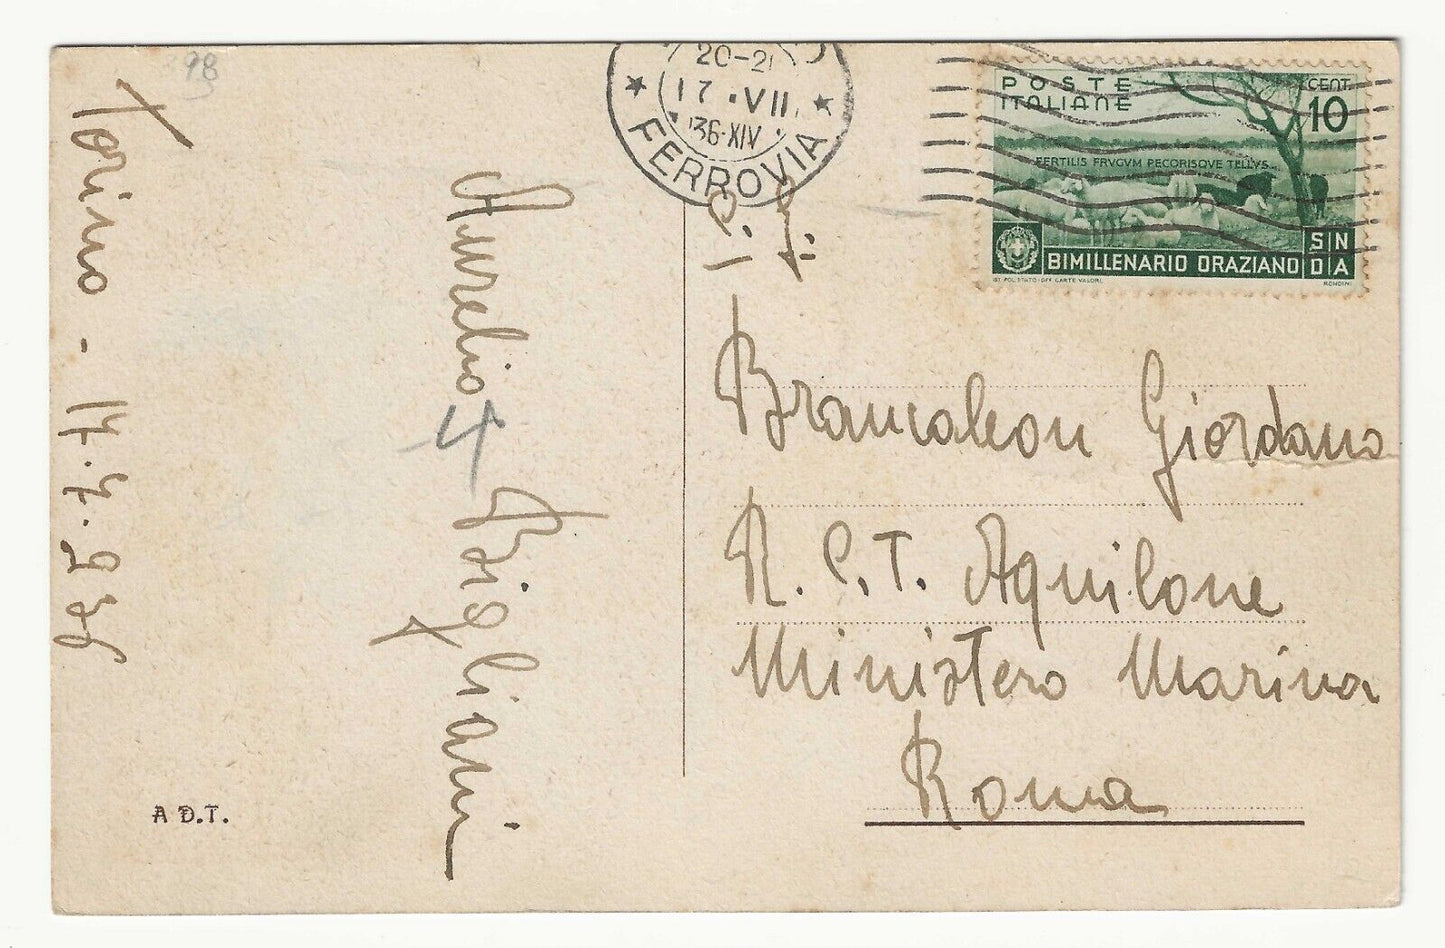 98
Torino - 17.7.936
Aurelio
4
Bigliani
A D.T.
20-21
17 . VII
36-XIV
FERROVIA
POSTE
ITALIANE
CENT.
10
FERTILIS FRVGVM PECORISQVE TELLVS
BIMILLENARIO ORAZIANO
SIN
DIA
IST. POL. STATO-OFF. CARTE VALORI.
RONDINI
Brancaleon Giordano
R. C. T. Aquilone
Ministero Marina
Roma